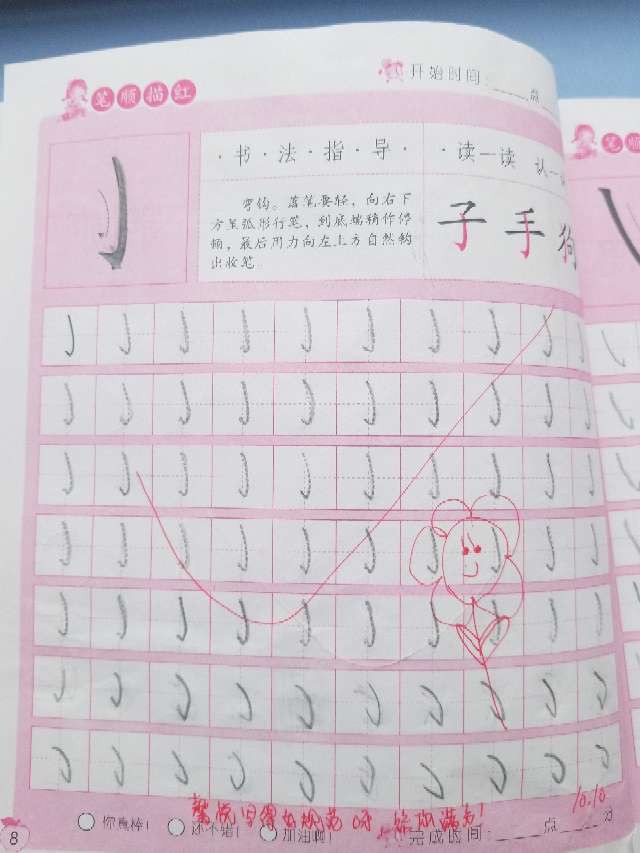 笔顺描红
开始时间:____点
笔顺
·书·法·指·导·
·读一读 认一
弯钩。落笔要轻，向右下
方呈弧形行笔，到底端稍作停
顿，最后用力向左上方自然钩
出收笔。
子 手 狗
写得
规范呀
满分!
10.10
你真棒!
还不错!
加油啊!
完成时间:____点____分
8